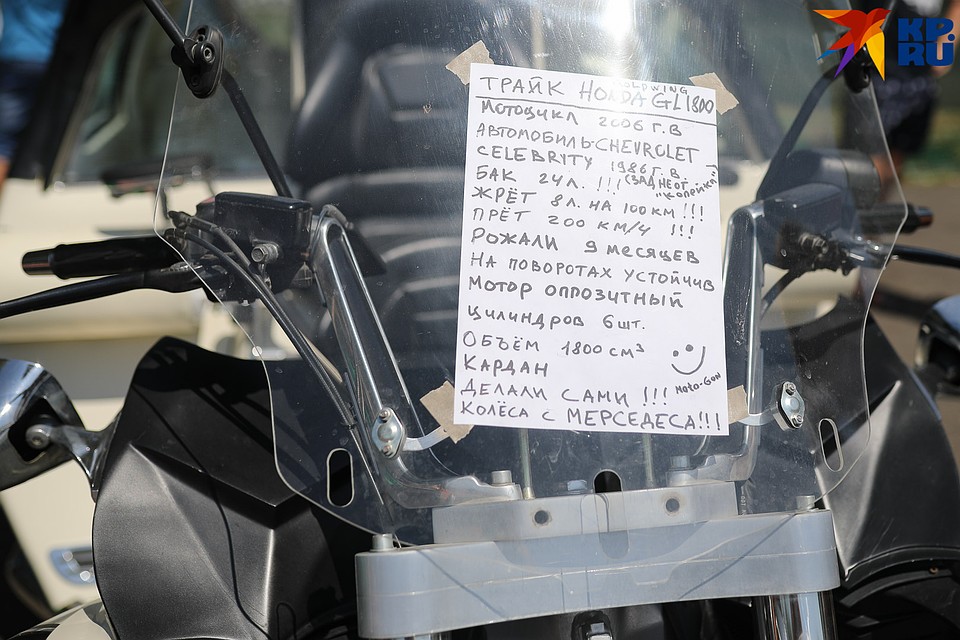 KP.RU
GOLDWING
ТРАЙК HONDA GL1800
МОТОЦИКЛ 2006 Г.В
АВТОМОБИЛЬ-CHEVROLET
CELEBRITY 1986 Г. В.
БАК 24 Л. !!! (ЗАД НЕ ОТ "КОПЕЙКИ")
ЖРЁТ 8 Л. НА 100 КМ !!!
ПРЁТ 200 КМ/Ч !!!
РОЖАЛИ 9 МЕСЯЦЕВ
НА ПОВОРОТАХ УСТОЙЧИВ
МОТОР ОППОЗИТНЫЙ
ЦИЛИНДРОВ 6 ШТ.
ОБЪЁМ 1800 СМ³
КАРДАН
ДЕЛАЛИ САМИ !!!
КОЛЁСА С МЕРСЕДЕСА!!!